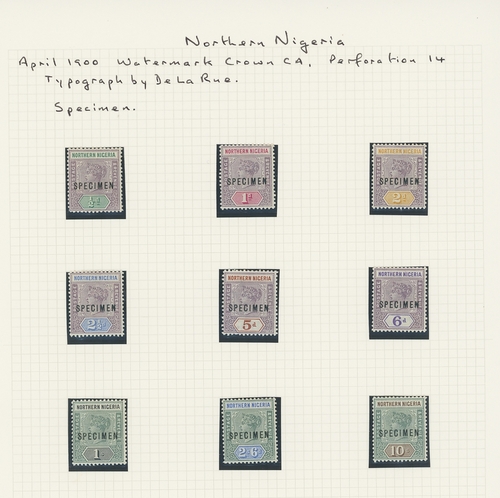 Northern Nigeria
April 1900 Watermark Crown CA. Perforation 14
Typograph by De La Rue.
Specimen.
NORTHERN NIGERIA
SPECIMEN
½d
NORTHERN NIGERIA
SPECIMEN
1d
NORTHERN NIGERIA
SPECIMEN
2d
NORTHERN NIGERIA
SPECIMEN
2½d
NORTHERN NIGERIA
SPECIMEN
5d
NORTHERN NIGERIA
SPECIMEN
6d
NORTHERN NIGERIA
SPECIMEN
1/-
NORTHERN NIGERIA
SPECIMEN
2/6
NORTHERN NIGERIA
SPECIMEN
10/-